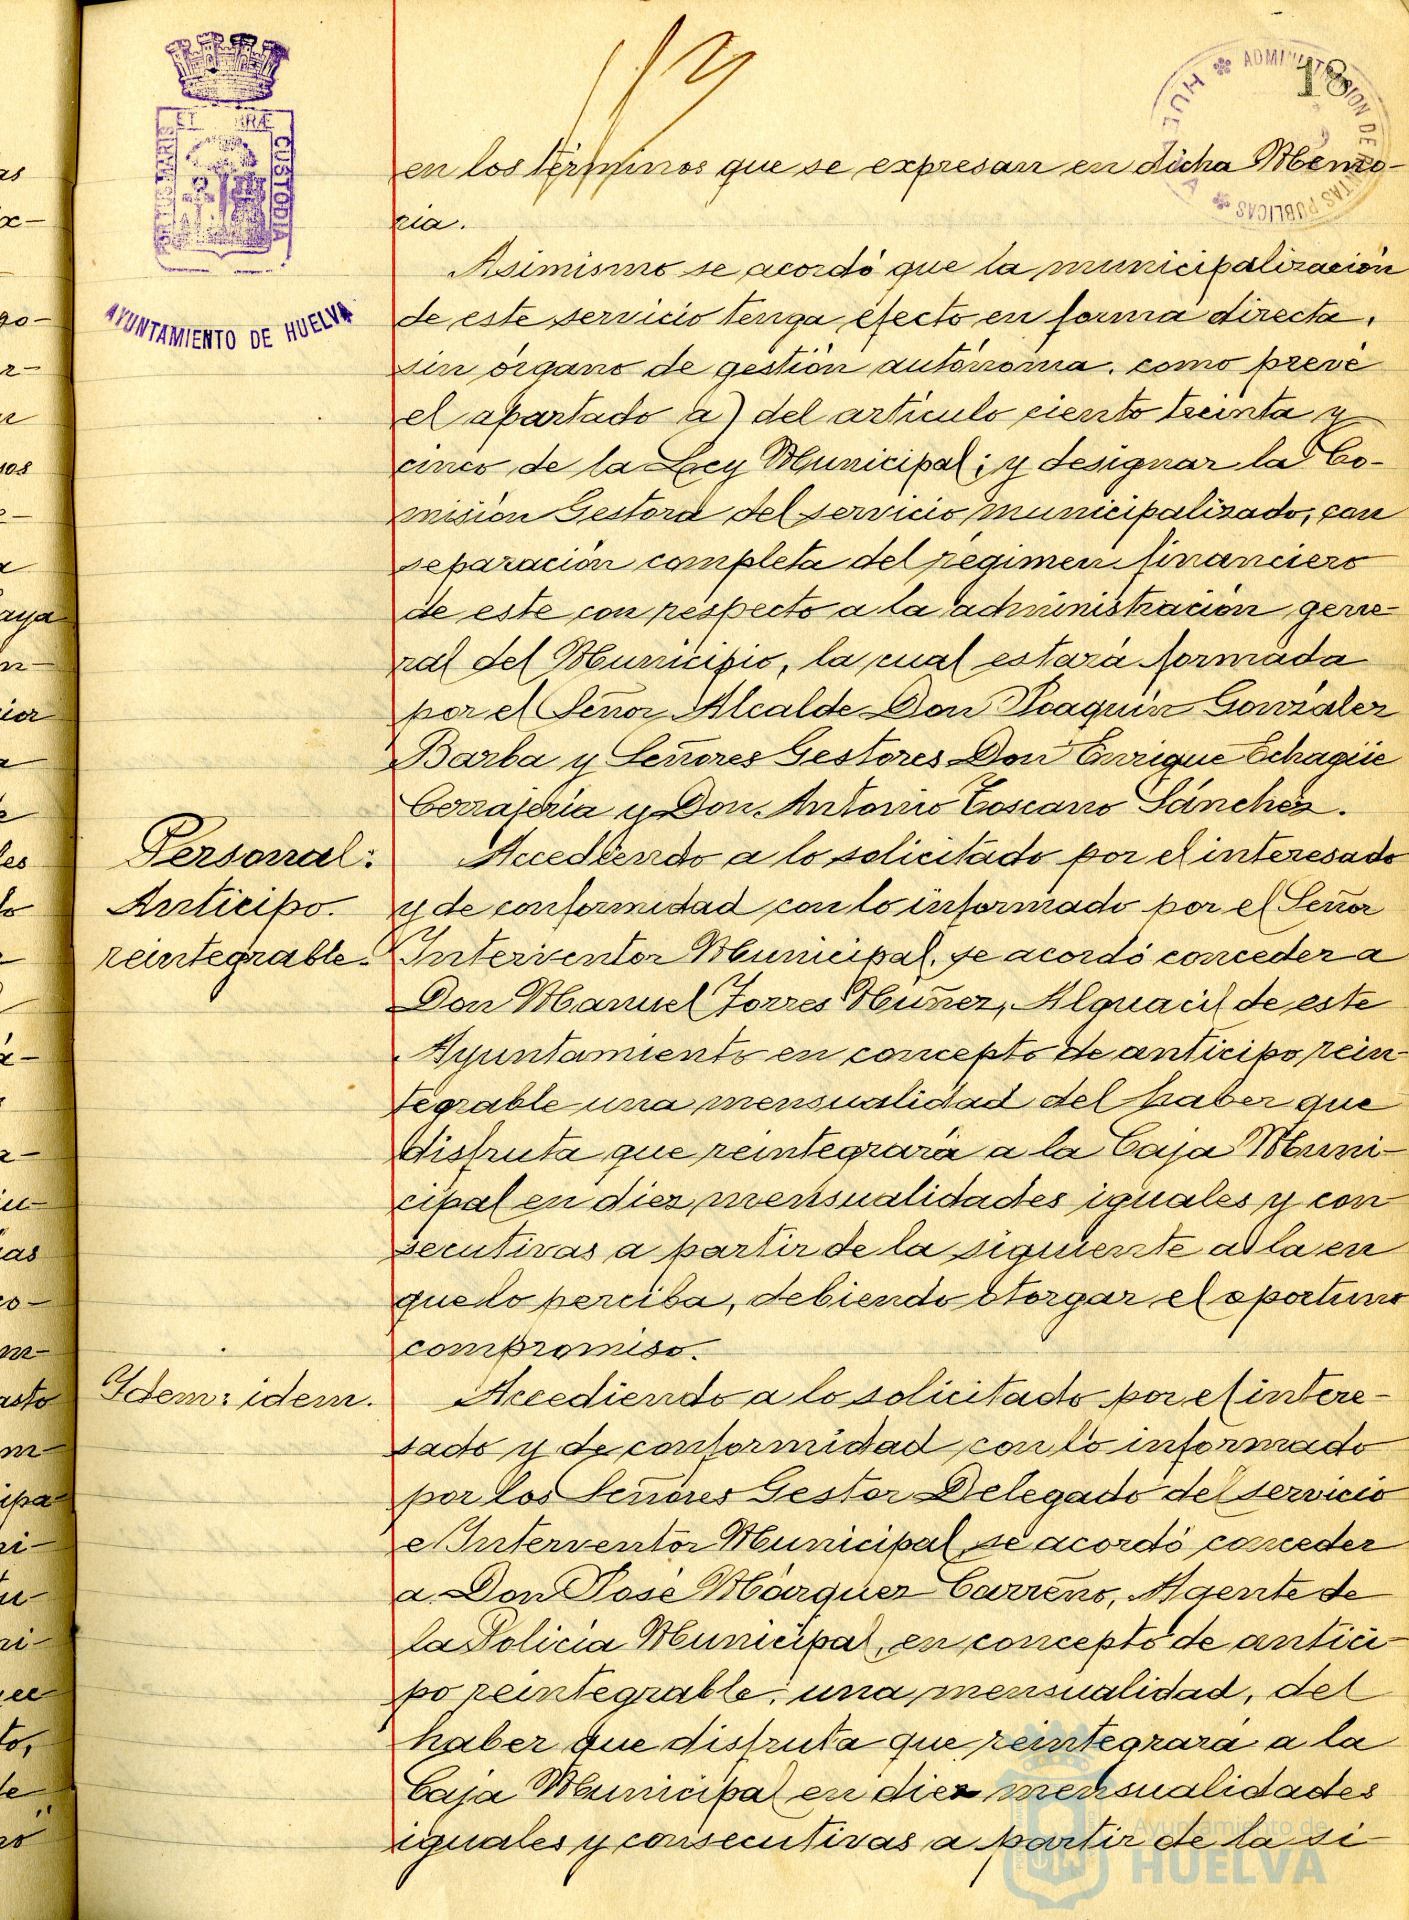 18
ADMINISTRACION DE RENTAS PUBLICAS
HUELVA
PORTUS MARIS ET TERRÆ CUSTODIA
AYUNTAMIENTO DE HUELVA
en los términos que se expresan en dicha Memo-
ria.
Asimismo se acordó que la municipalización
de este servicio tenga efecto en forma directa,
sin órgano de gestión autónoma, como prevé
el apartado a) del artículo ciento treinta y
cinco de la Ley Municipal; y designar la Co-
misión Gestora del servicio municipalizado, con
separación completa del régimen financiero
de este con respecto a la administración gene-
ral del Municipio, la cual estará formada
por el Señor Alcalde Don Joaquín González
Barba y Señores Gestores Don Enrique Echagüe
Cerrajería y Don Antonio Toscano Sánchez.
Personal:
Anticipo.
reintegrable.
Accediendo a lo solicitado por el interesado
y de conformidad con lo informado por el Señor
Interventor Municipal, se acordó conceder a
Don Manuel Torres Núñez, Alguacil de este
Ayuntamiento en concepto de anticipo rein-
tegrable una mensualidad del haber que
disfruta que reintegrará a la Caja Muni-
cipal en diez mensualidades iguales y con
secutivas a partir de la siguiente a la en
que lo perciba, debiendo otorgar el oportuno
compromiso.
Idem: idem.
Accediendo a lo solicitado por el intere-
sado y de conformidad con lo informado
por los Señores Gestor Delegado del servicio
e Interventor Municipal, se acordó conceder
a Don José Márquez Carreño, Agente de
la Policía Municipal, en concepto de antici-
po reintegrable, una mensualidad, del
haber que disfruta que reintegrará a la
Caja Municipal en diez mensualidades
iguales y consecutivas a partir de la si-
Ayuntamiento de
HUELVA